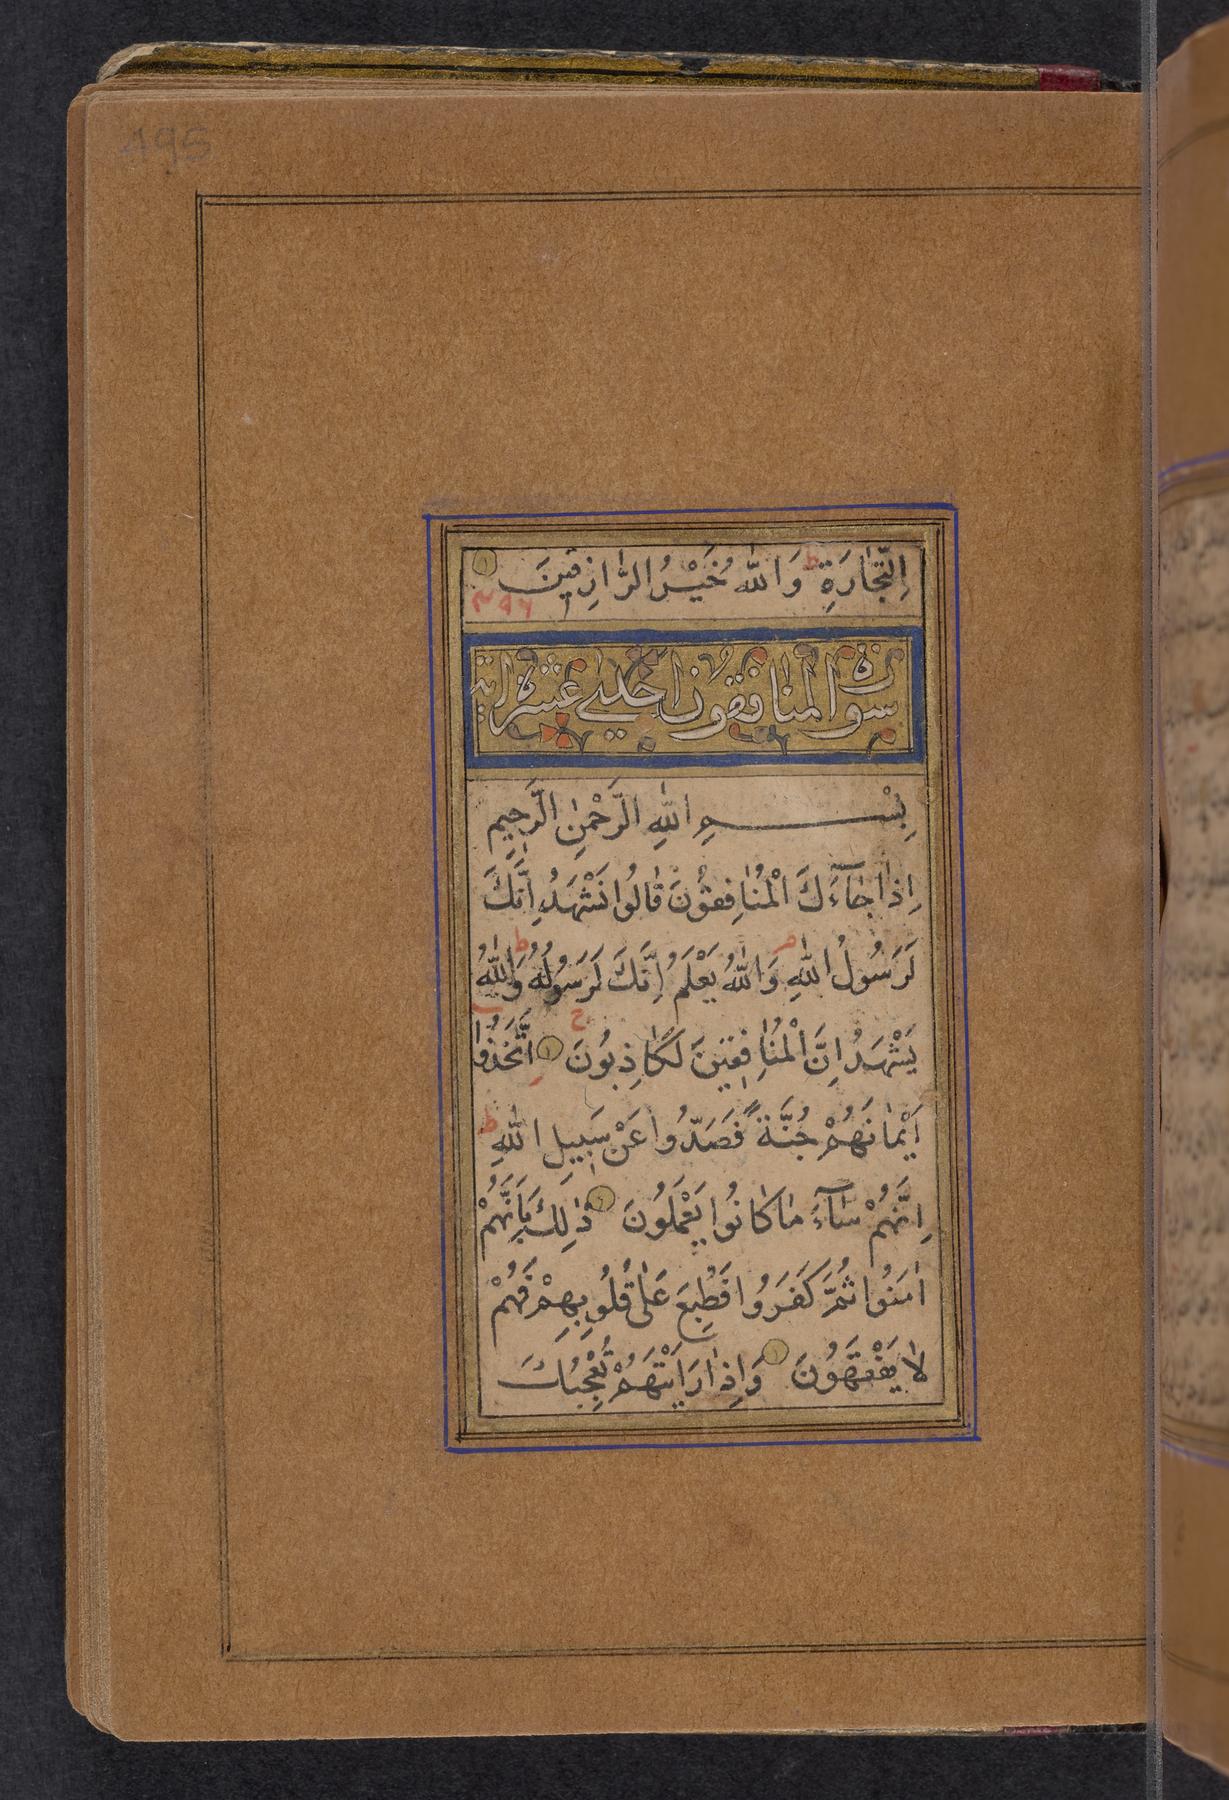 495
اِلتِّجَارَةِ ط وَاللّٰهُ خَيْرُ الرَّازِقِينَ
سورة المنافقون احدی عشرة اية
بِسْمِ اللّٰهِ الرَّحْمٰنِ الرَّحِيمِ
اِذَا جَآءَكَ الْمُنَافِقُونَ قَالُوا نَشْهَدُ اِنَّكَ
لَرَسُولُ اللّٰهِ م وَاللّٰهُ يَعْلَمُ اِنَّكَ لَرَسُولُهُ ط وَاللّٰهُ
يَشْهَدُ اِنَّ الْمُنَافِقِينَ لَكَاذِبُونَ ج اِتَّخَذُوا
اَيْمَانَهُمْ جُنَّةً فَصَدُّوا عَنْ سَبِيلِ اللّٰهِ ط
اِنَّهُمْ سَآءَ مَا كَانُوا يَعْمَلُونَ ذٰلِكَ بِاَنَّهُمْ
اٰمَنُوا ثُمَّ كَفَرُوا فَطُبِعَ عَلٰى قُلُوبِهِمْ فَهُمْ
لَا يَفْقَهُونَ وَاِذَا رَاَيْتَهُمْ تُعْجِبُكَ